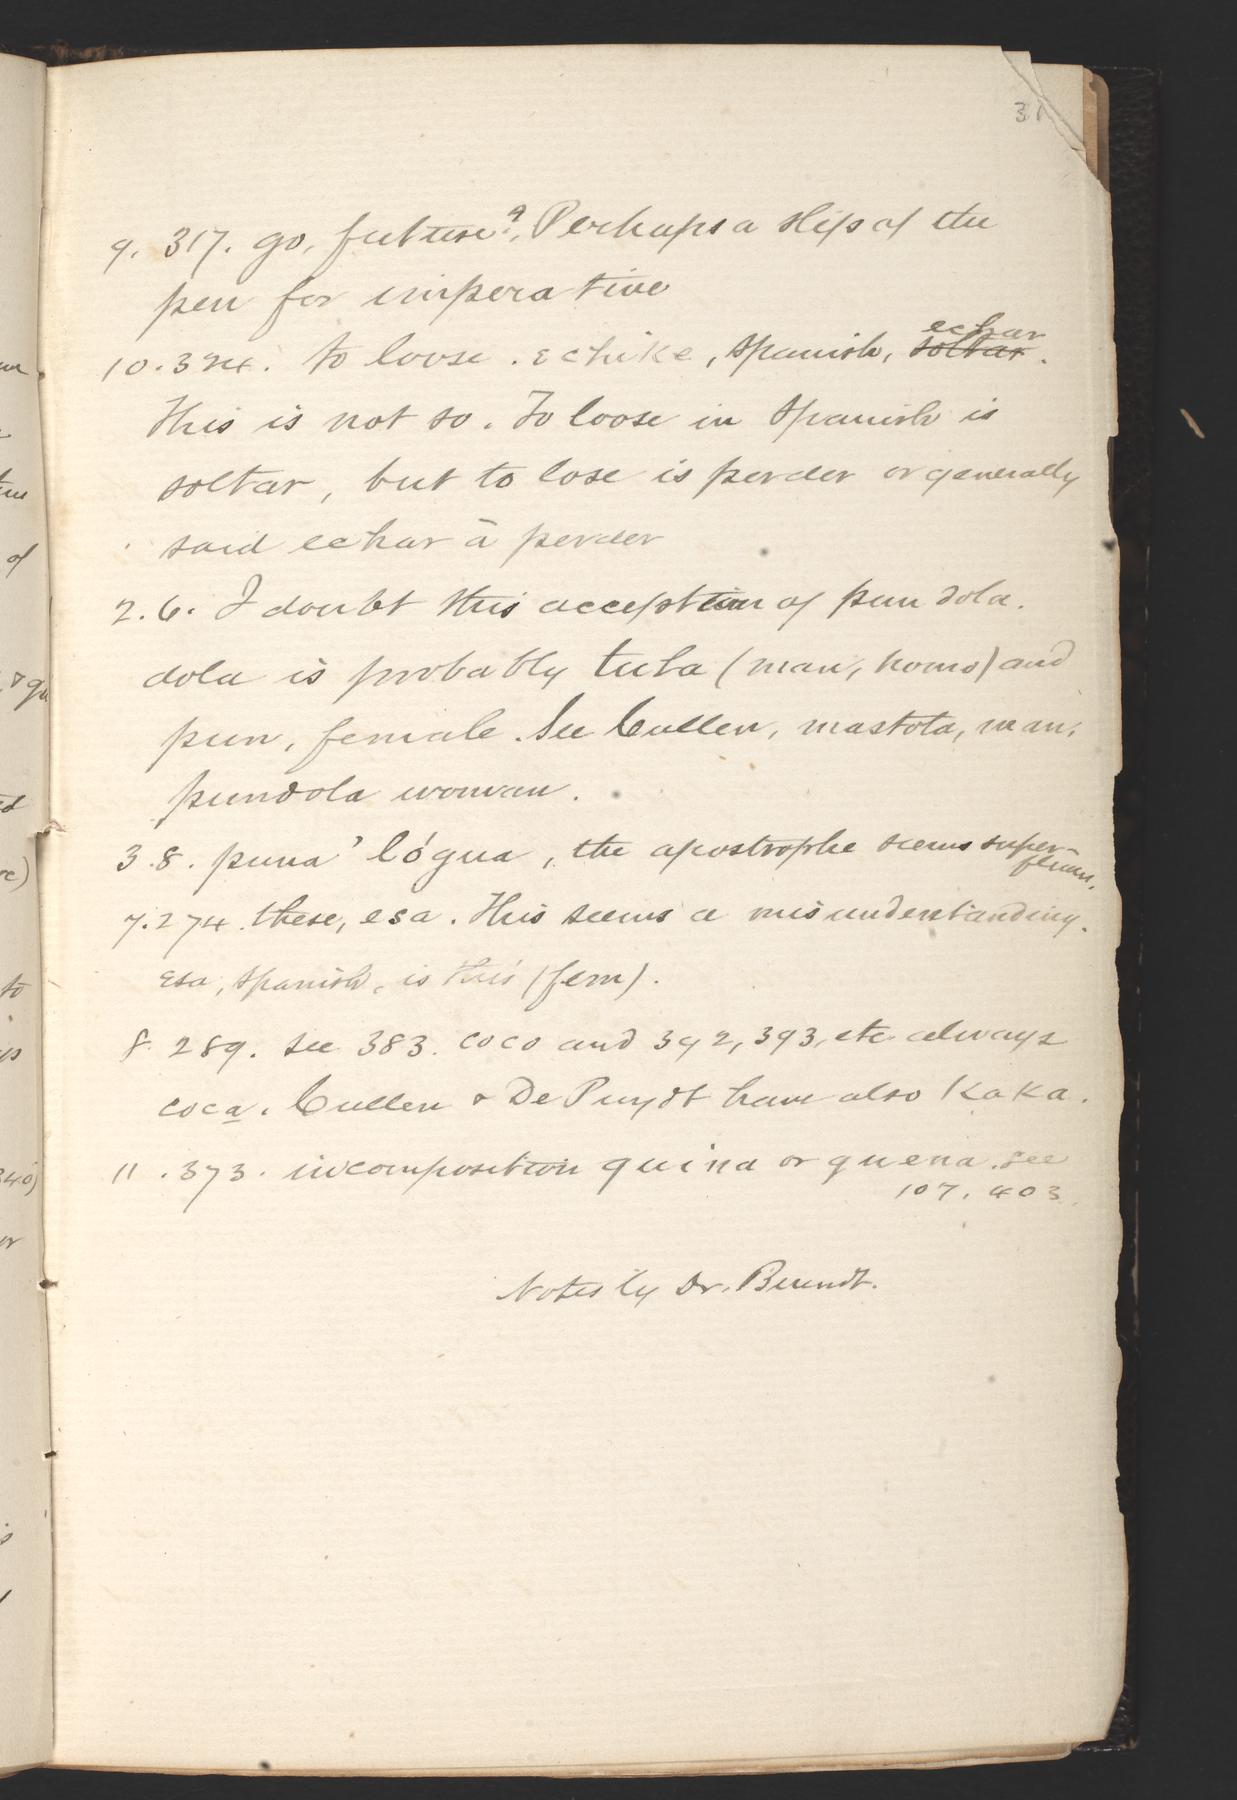 31
9. 317. go, future?, Perhaps a slip of the
pen for imperative
10. 324. to loose. echike, Spanish, soltar echar.
This is not so. To loose in Spanish is
soltar, but to lose is perder or generally
said echar à perder
2. 6. I doubt this acception of pundola.
dola is probably tula (man, homo) and
pun, female. See Cullen, mastola, man;
pundola woman.
3. 8. puna' lógua, the apostrophe seems super-
fluous.
7. 274. these, esa. This seems a misunderstanding.
Esa, Spanish, is this (fem).
8. 289. see 383. coco and 392, 393, etc. always
coca. Cullen & De Puydt have also Kaka.
11. 373. in composition quina or quena. see
107. 403.
Notes by Dr. Berendt.